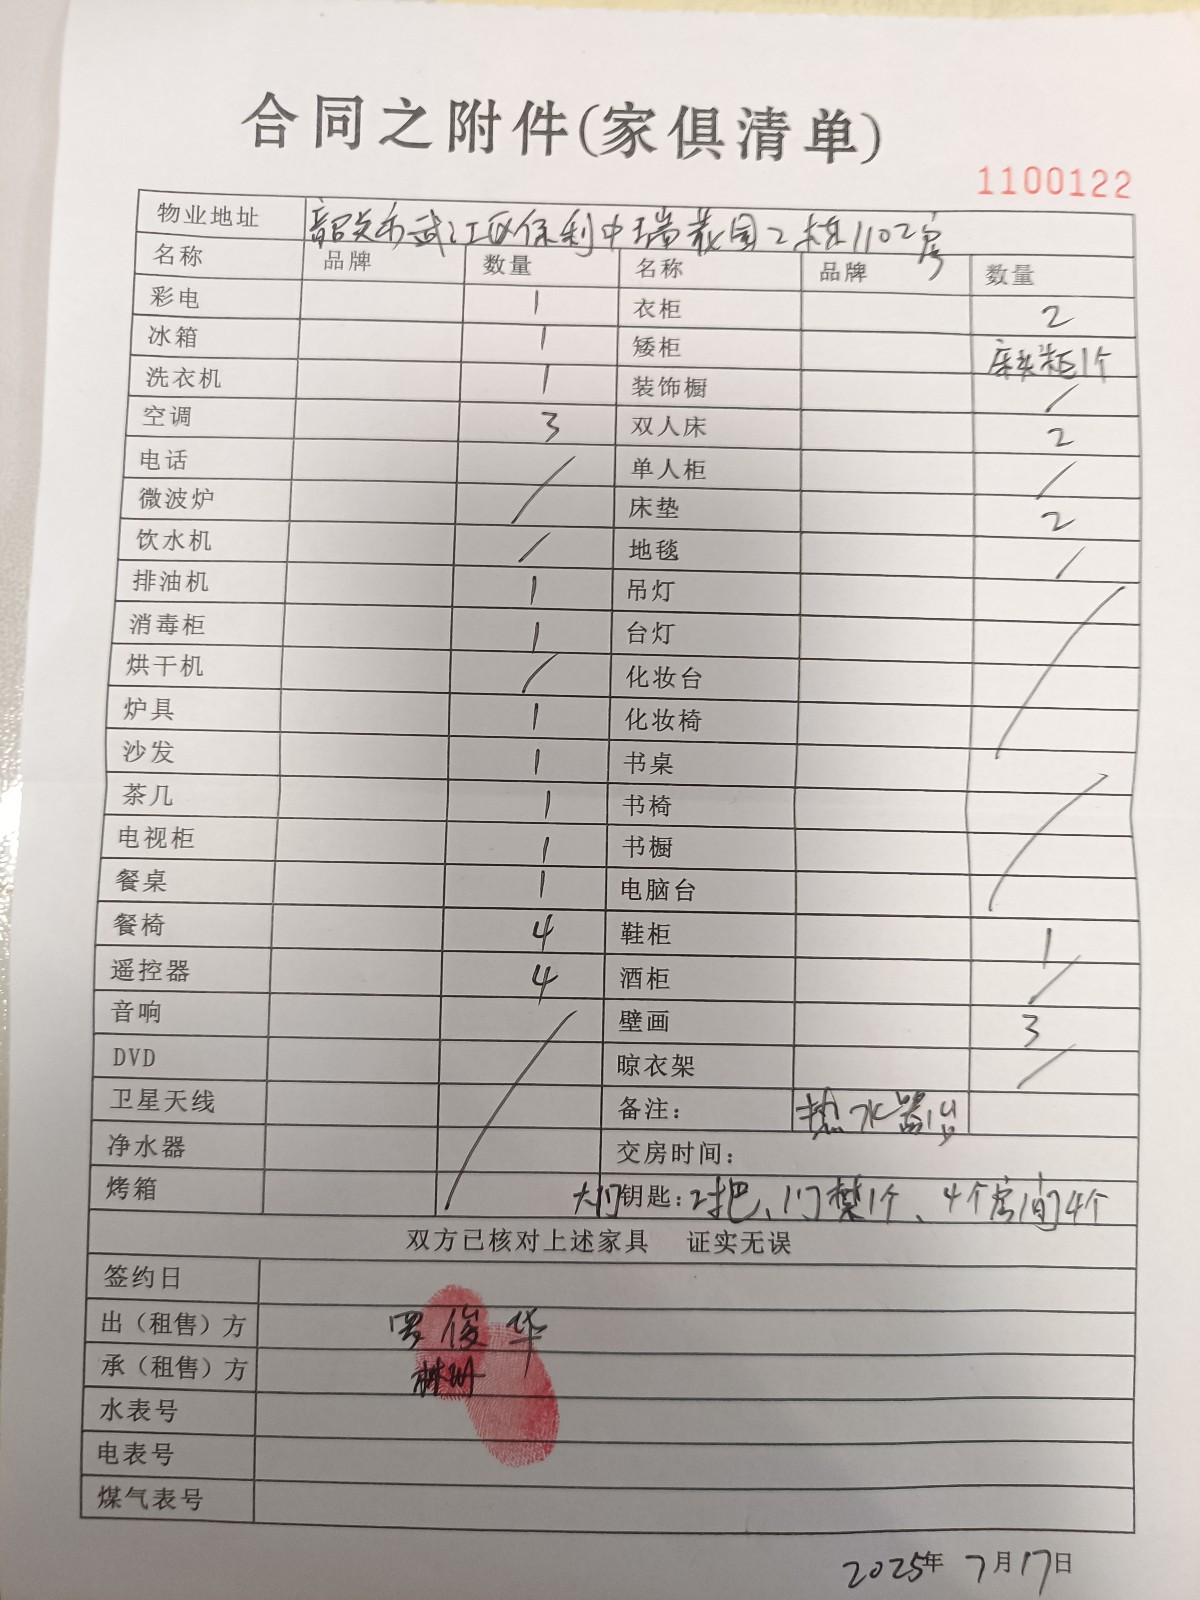 合同之附件(家俱清单)
1100122
物业地址 韶关市武江区保利中瑞花园2栋1102房
名称 品牌 数量 名称 品牌 数量
彩电 1 衣柜 2
冰箱 1 矮柜 床头柜1个
洗衣机 1 装饰橱 /
空调 3 双人床 2
电话 / 单人柜 /
微波炉 床垫 2
饮水机 / 地毯 /
排油机 1 吊灯 /
消毒柜 1 台灯
烘干机 / 化妆台
炉具 1 化妆椅
沙发 1 书桌
茶几 1 书椅 /
电视柜 1 书橱
餐桌 1 电脑台
餐椅 4 鞋柜 1
遥控器 4 酒柜 /
音响 / 壁画 3
DVD 晾衣架 /
卫星天线 备注: 热水器1台
净水器 交房时间:
烤箱 大门钥匙: 2把、门禁1个、4个房间4个
双方已核对上述家具 证实无误
签约日
出(租售)方 罗俊华
承(租售)方
水表号
电表号
煤气表号
2025年7月17日